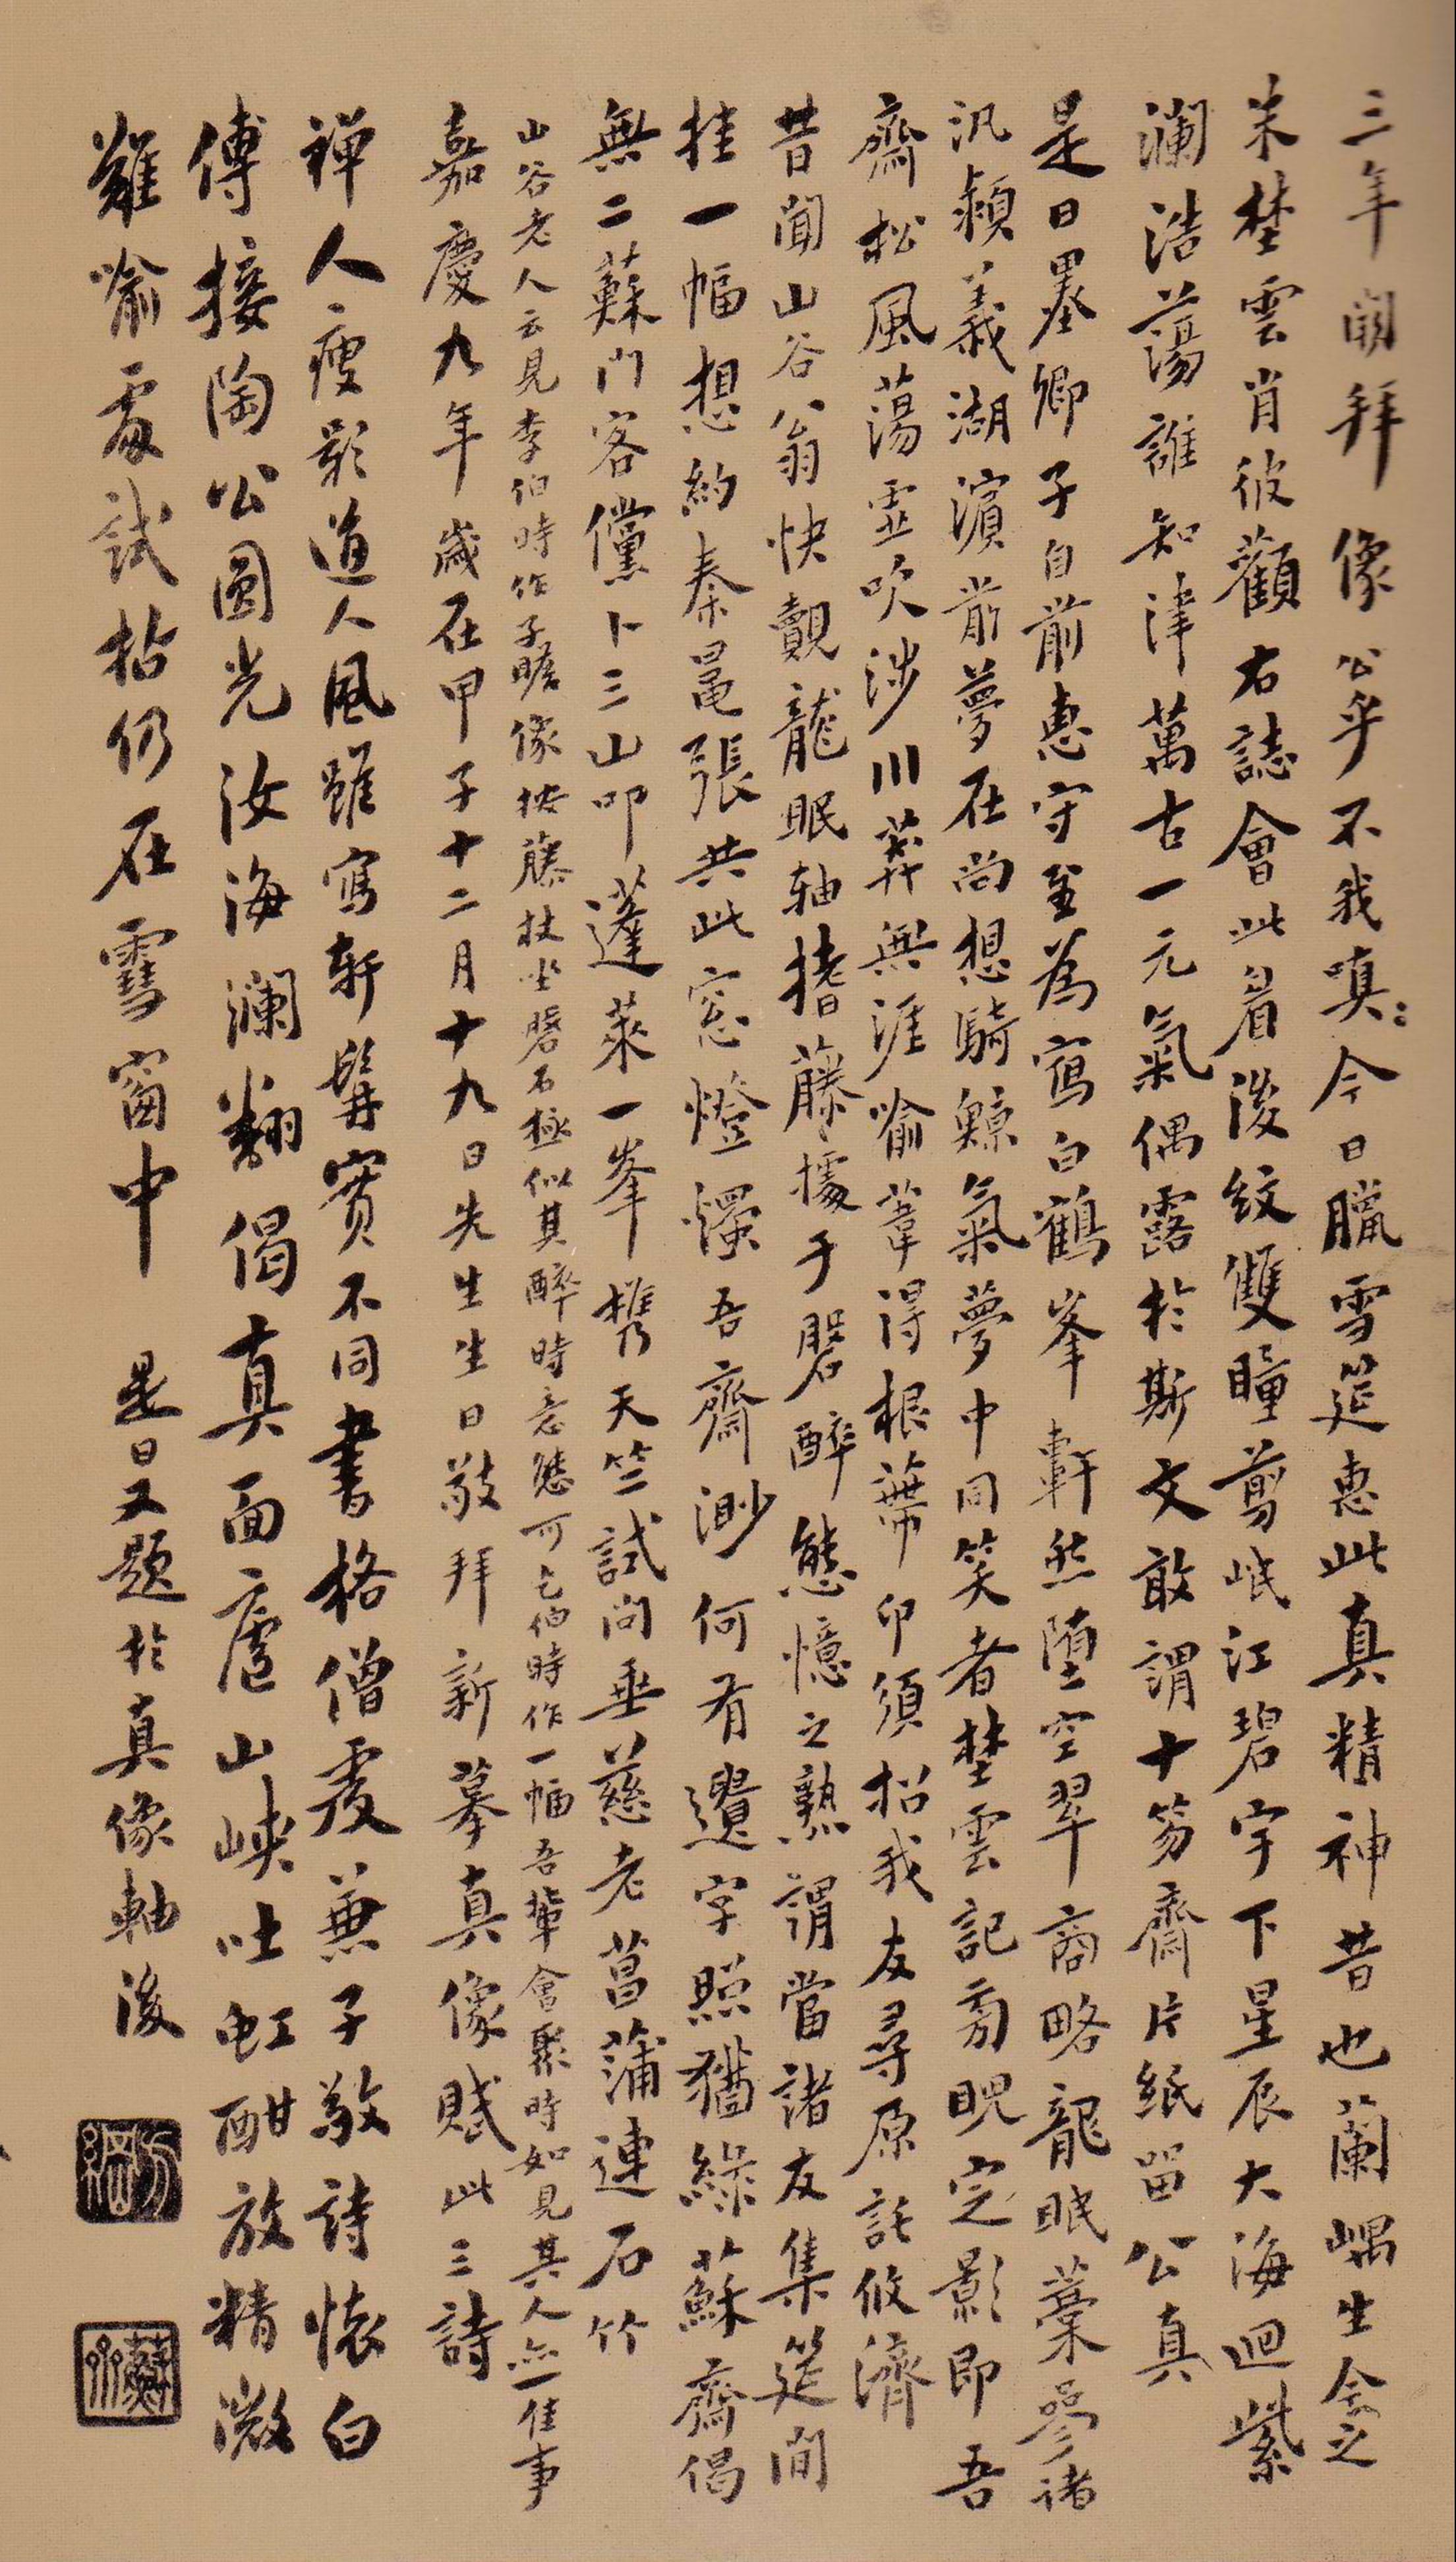 三年閟拜像公乎不我嗔〻今日臘雪筵惠此真精神昔也蘭嵎生今之
朱埜雲肖彼顴右誌會此眉後紋雙瞳剪岷江碧宇下星辰大海迴紫
瀾浩蕩誰知津萬古一元氣偶露於斯文敢謂十笏齋片紙留公真
是日墨卿子自前惠守至為寫白鶴峯軒然墮空翠商略龍眠藁參諸
汎潁義湖濵前夢在尚想騎鯨氣夢中同笑者埜雲記旁睨定影即吾
齋松風蕩虛吹涉川莽無涯喻葦得根蒂卬須招我友尋原託攸濟
昔聞山谷翁快覿龍眠軸搘藤據于磐醉態憶之熟謂當諸友集筵間
挂一幅想約秦鼂張共此窓燈燭吾齋渺何有還字照猶綠蘇齋偈
無二蘇門客儻卜三山叩蓬萊一峯携天竺試問垂慈老菖蒲連石竹
山谷老人云見李伯時作子瞻像按藤杖坐磐石極似其醉時意態可乞伯時作一幅吾輩會聚時如見其人亦一佳事
嘉慶九年歲在甲子十二月十九日先生生日敬拜新摹真像賦此三詩
禪人瘦影道人風雖寫斬髯實不同書格僧虔兼子敬詩懷白
傅接陶公圓光汝海瀾翻偈真面廬山峽吐虹酣放精微
難喻處試拈仍在雪窗中 是日又題於真像軸後